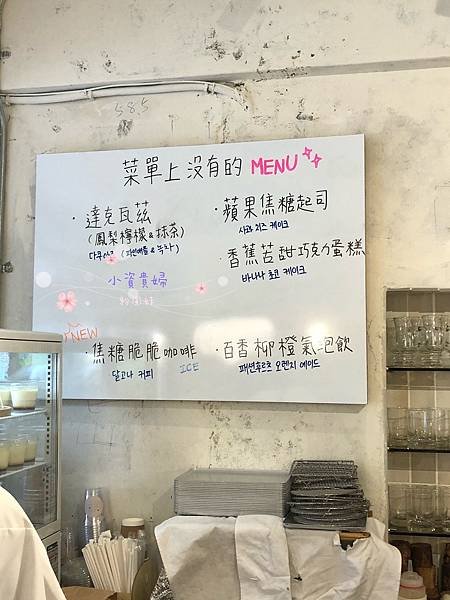 585
菜單上沒有的 MENU
·達克瓦茲
(鳳梨檸檬&抹茶)
다쿠아즈 (파인애플 & 녹차)
小資貴婦
·蘋果焦糖起司
사과 치즈 케이크
·香蕉苦甜巧克力蛋糕
바나나 초코 케이크
NEW
·焦糖脆脆咖啡
달고나 커피 ICE
·百香柳橙氣泡飲
패션후르츠 오렌지 에이드